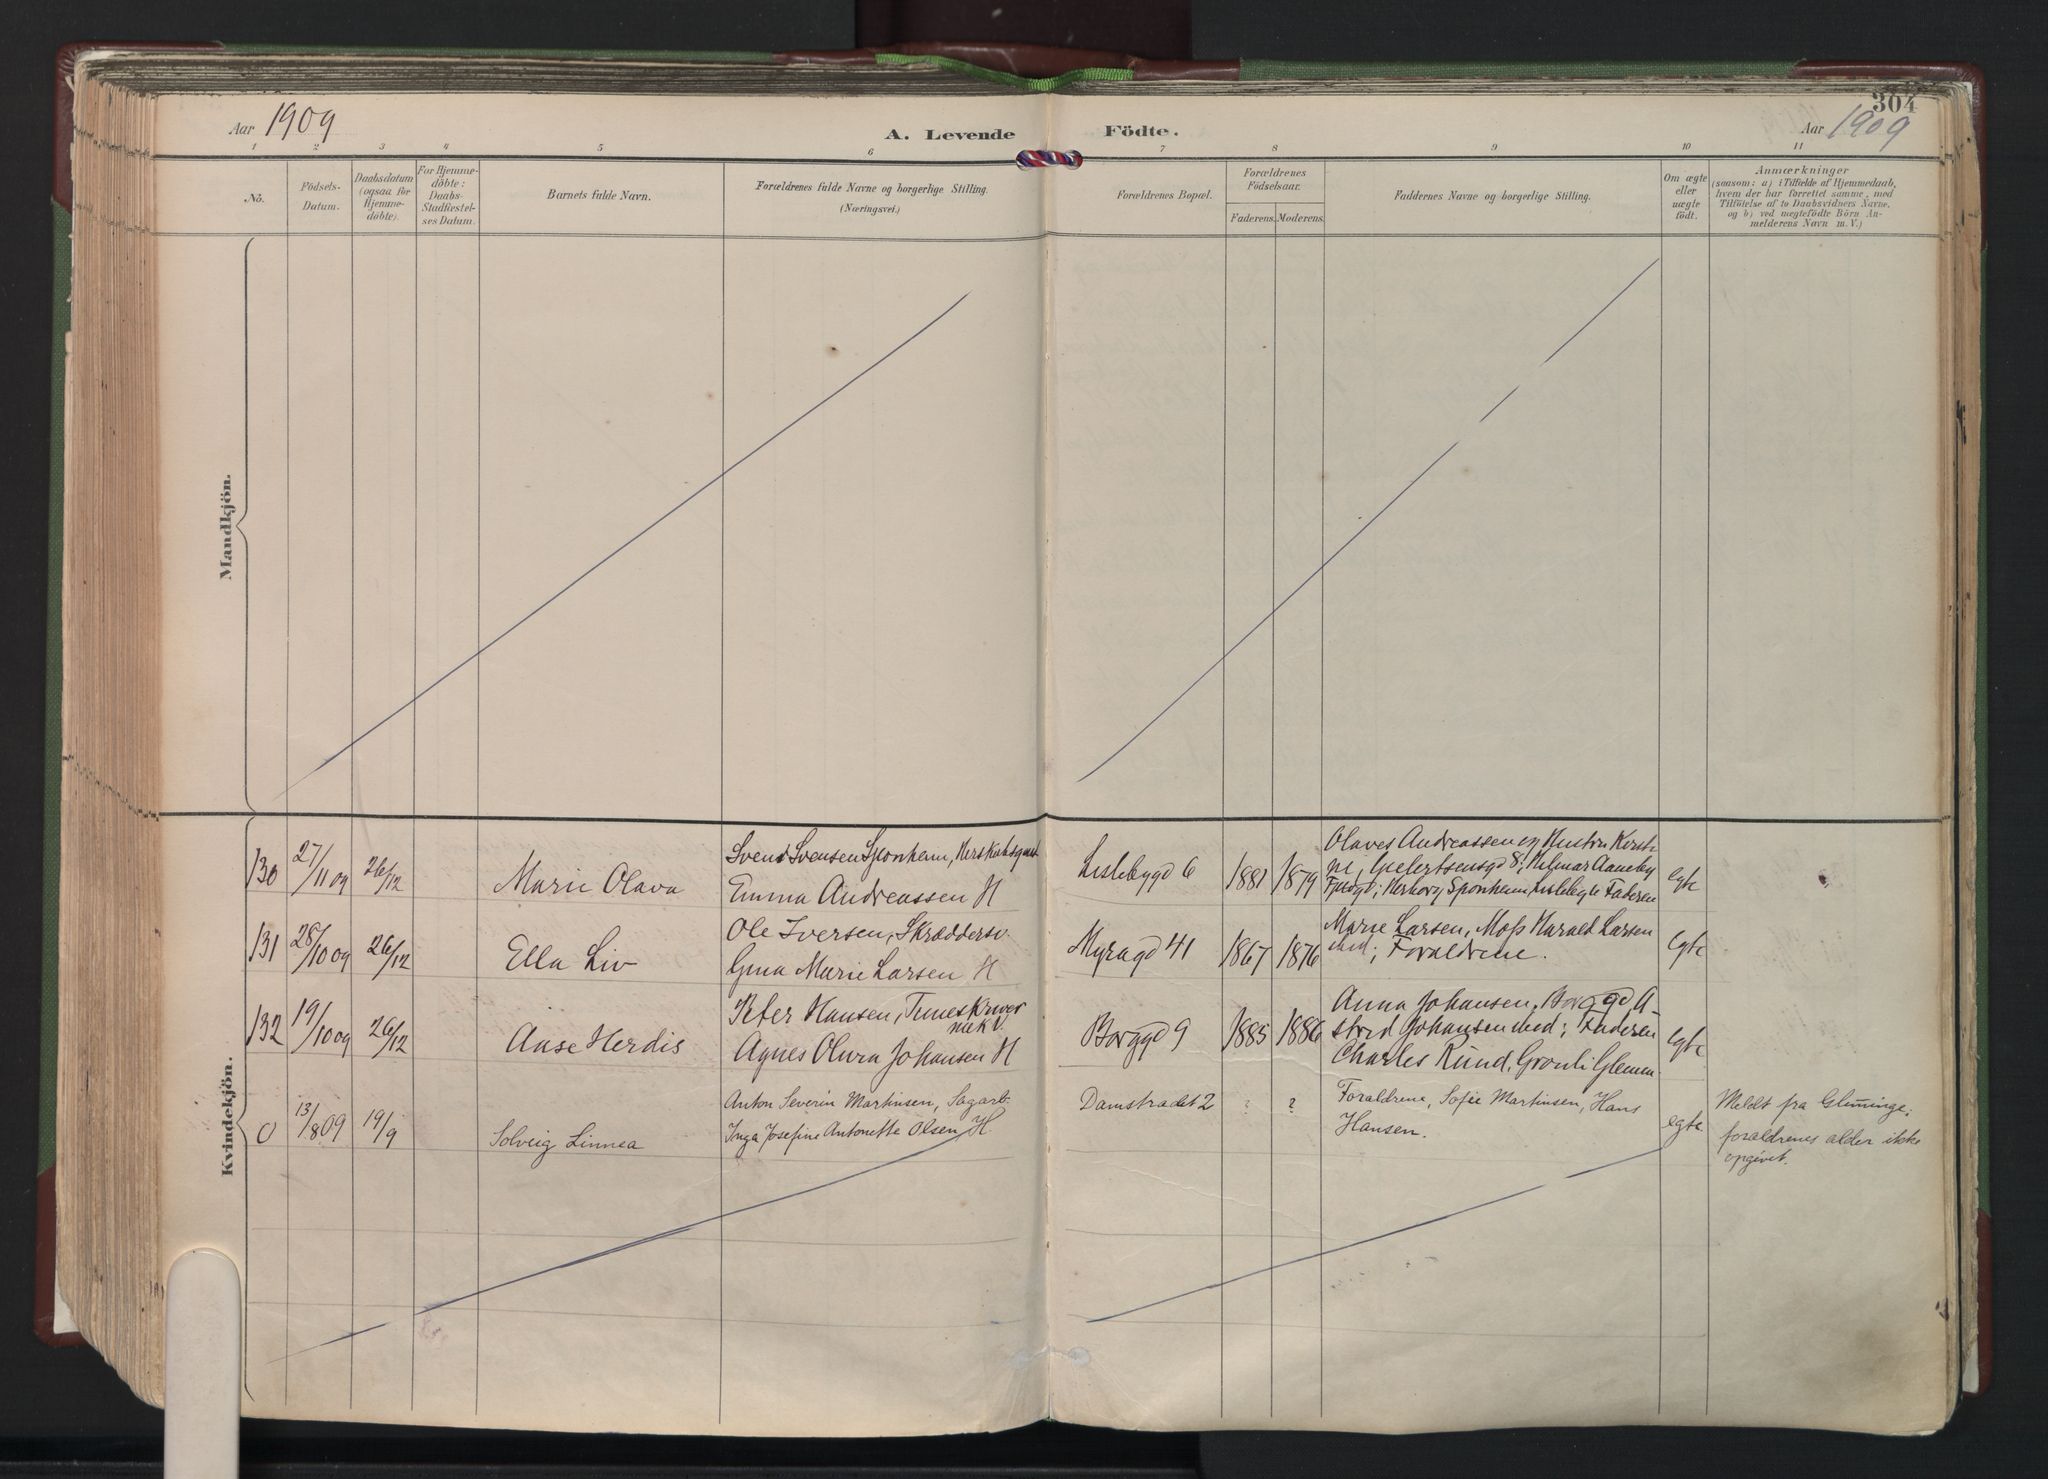 304
Aar 1909
A. Levende Födte.
Aar 1909
1 2 3 4 5 6 7 8 9 10 11
No.
Födsels-
Datum.
Daabsdatum
(ogsaa for
Hjemme-
döbte).
For Hjemme-
döbte:
Daabs-
Stadfæstel-
ses Datum.
Barnets fulde Navn.
Forældrenes fulde Navne og borgerlige Stilling.
(Næringsvei.)
Forældrenes Bopæl.
Forældrenes
Födselsaar.
Faderens. Moderens.
Faddernes Navne og borgerlige Stilling.
Om ægte
eller
uægte
födt.
Anmærkninger
(saasom: a) i Tilfælde af Hjemmedaab,
hvem der har forrettet samme, med
Tilföielse af to Daabsvidners Navne,
og b) ved uægtefödte Börn An-
melderens Navn m. V.)
Mandkjön.
Kvindekjön.
130 27/11 09 26/12 Marie Olava
Svend Svensen Sponheim,
Emma Andreassen H
Lislebygd 6 1881 1879
Olaves Andreassen og Hustru Kersti-
ne, 8; Hilmar Aaneby
Sponheim, Faderen
egte
131 28/10 09 26/12 Ella Liv
Ole Iversen, Skræddersv.
Gina Marie Larsen H
Myragd 41 1867 1876
Marie Larsen, Moss Harald Larsen
ibid; Foraldrene.
egte
132 19/10 09 26/12 Aase Herdis
Peter Hansen,
Agnes Olura Johansen H
Borggd 9 1885 1886
Anna Johansen, Borggd, A-
strid Johansen ibid; Faderen
Charles Rund, Gronli Glemm
egte
0 13/8 09 19/9 Solveig Linnea
Anton Severin Martinsen, Sagarb.
Inga Josefine Antonette Olsen H.
Damstradet 2 ? ?
Foraldrene, Sofie Martinsen, Hans
Hansen.
egte
Meldt fra Glemminge;
foraldrenes alder ikke
opgivet.